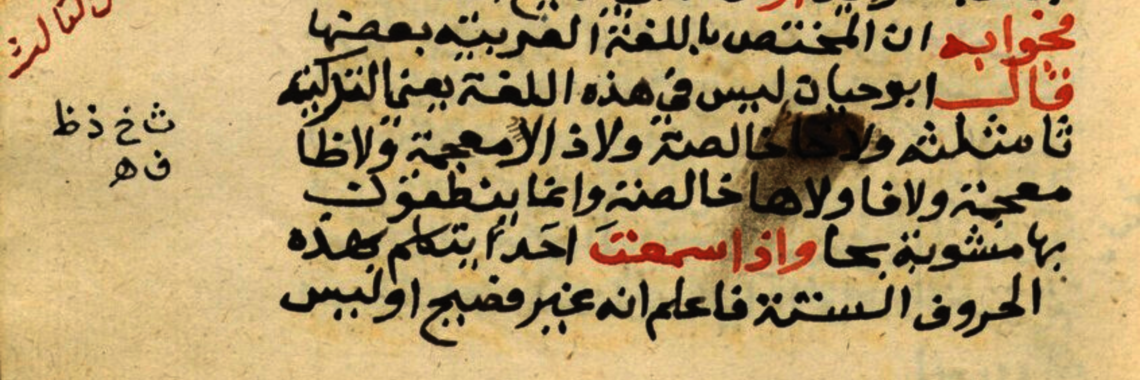 فجوابه ان المختص باللغة العربية بعضها
قال ابو حيان ليس في هذه اللغة يعنى التركية
ثا مثلثه ولا خا خالصة ولا ذ الا معجمة ولا ظا
معجمة ولا فا ولا ها خالصة وانما ينطقون
بها مشوبة بحا واذا سمعت احدا يتكلم بهذه
الحروف الستة فاعلم انه غير فصيح او ليس
الثالث
ث خ ذ ظ
ف ه